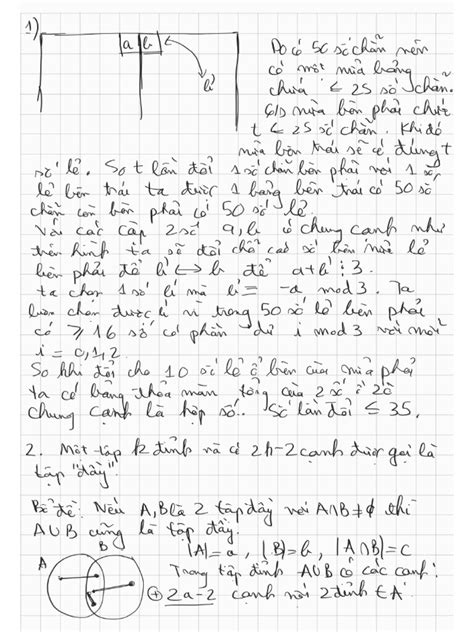 1)
a b
lẻ
Do có 50 số chẵn nên
có một nửa bảng
chứa ≤ 25 số chẵn.
G/s nửa bên phải chứa
t ≤ 25 số chẵn. Khi đó
nửa bên trái sẽ có đúng t
số lẻ. Sau t lần đổi 1 số chẵn bên phải với 1 số
lẻ bên trái ta được 1 bảng bên trái có 50 số
chẵn còn bên phải có 50 số lẻ
Với các cặp 2 số a, b có chung cạnh như
trên hình ta sẽ đổi chỗ các số bên nửa lẻ
bên phải để li ↔ b để a+li ⋮ 3.
ta chọn 1 số li mà li ≡ -a mod 3. Ta
luôn chọn được li vì trong 50 số lẻ bên phải
có ≥ 16 số có phần dư i mod 3 với mỗi
i = 0,1,2
Sau khi đổi cho 10 số lẻ ở biên của nửa phải
ta có bảng thỏa mãn tổng của 2 số ở 2 ô
chung cạnh là hợp số. Số lần đổi ≤ 35.
2. Một tập k đỉnh mà có 2k-2 cạnh được gọi là
tập "đầy"
Bổ đề: Nếu A, B là 2 tập đầy với A∩B ≠ ∅ thì
A∪B cũng là tập đầy.
A B
|A| = a, |B| = b, |A∩B| = c
Trong tập đỉnh A∪B có các cạnh:
+ 2a-2 cạnh nối 2 đỉnh ∈ A